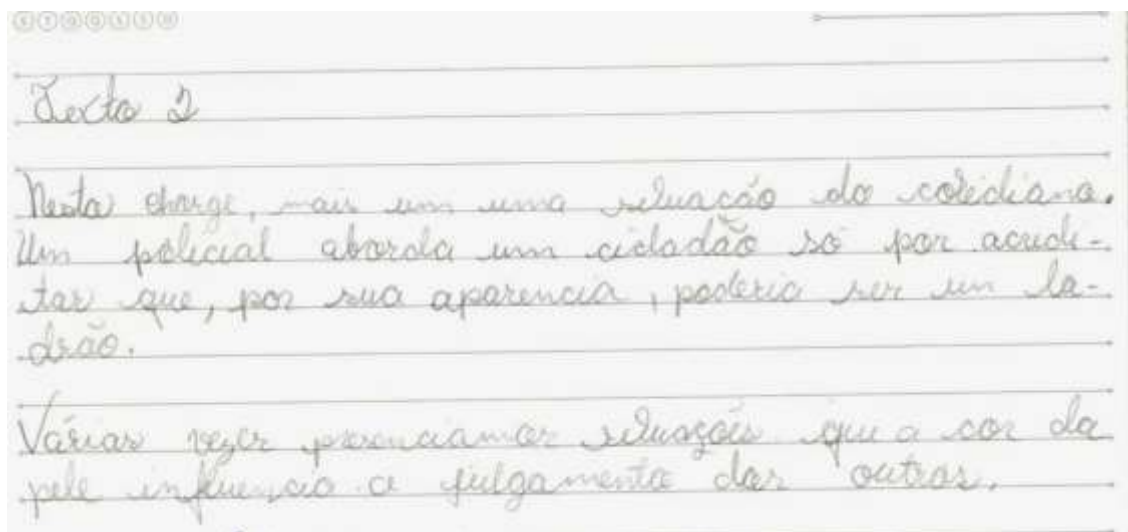 S T Q Q S S D
Texto 2
Nesta charge, mais um uma situacão do cotidiano.
Um policial aborda um cidadão só por acredi-
tar que, por sua aparencia, poderia ser um la-
drão.
Várias vezes presenciamos situações que a cor da
pele influencia o julgamento dos outros.